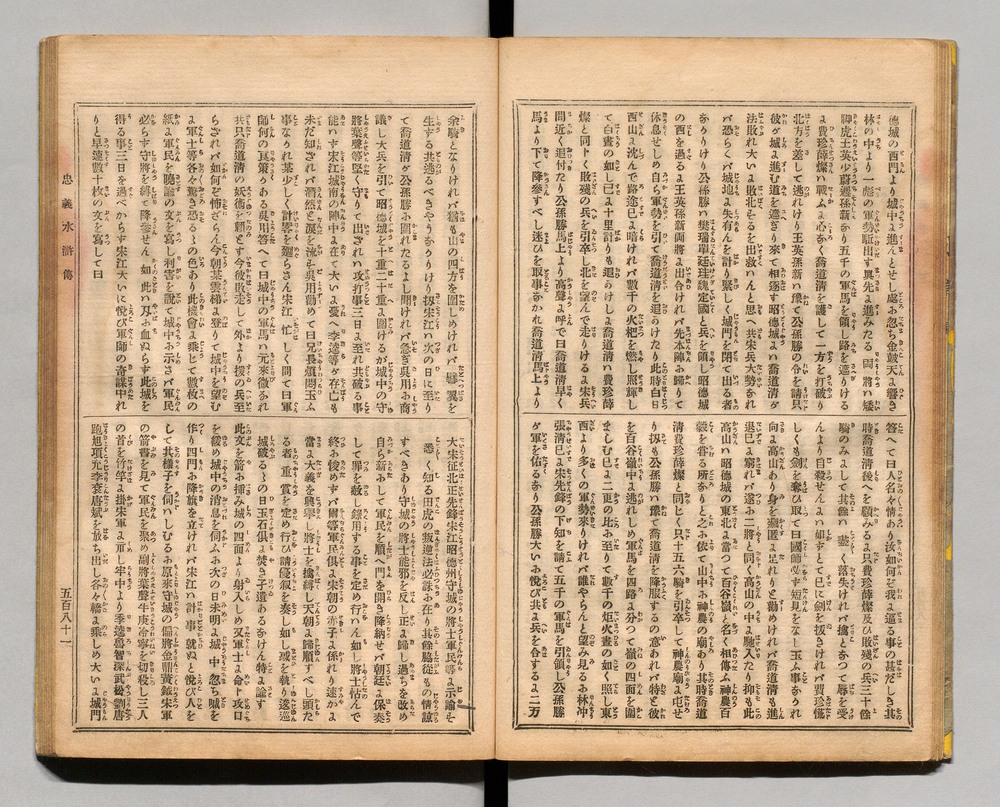 德城の西門より城中ょ進んとせし處ょ忽ち金鼓天ょ響き
林の中より一彪の軍勢駈出す眞先ょ進みたる両將ハ矮
脚虎王英少尉遲孫新なり五千の軍馬を領し路を遮りける
ょ費珍薛燦ハ戰ふょ心なく喬道清を護して一方を打破り
北方を差して逃れけり王英孫新ハ豫て公孫勝の令を請只
彼が城ょ進む道を遮ぎり來て相逐す昭德城ょハ喬道清が
法敗れ大いょ敗北せるを出救ハんと思へ共宋兵大勢なれ
バ恐らくハ城地ょ失有んを計り堅しく城門を閉て出る者
なりけり公孫勝ハ樊瑞單廷珪魏定國と兵を領し昭德城
の西を過るょ王英孫新両將ょ出合けれバ先本陣ょ歸りて
休息せしめ自ら軍勢を引て喬道清を追かけたり此時白日
西山ょ沈んで路途已ょ暗けれバ數千の火把を燃し照輝し
て白晝の如し已ょ十里計りも追かけしょ喬道清ハ費珍薛
燦と同トく敗殘の兵を引卒し北を窺んで走りけるょ宋兵
間近く追付たり公孫勝馬上より高聲ょ呼で曰喬道清早く
馬より下て降參すべし迷ひを取事なかれ喬道清馬上より
答へて曰人名々情あり汝如何ぞ我ょ逼る事の甚だしき其
時喬道清後へを顧みるょ只費珍薛燦及び敗殘の兵三十餘
騎のみょして其餘ハ盡く落失けれバ擒となつて辱を受
んより自殺せんょハ如すとて已ょ劍を抜きけれバ費珍慌
しくも劍を奪ひ取て曰國師必す短見をなし玉ふ事なかれ
向ょ高山あり身を藏匿ょ足れりと勸めけれバ喬道清も進
退已ょ窮れバ遂ょ二將と同く高山の中ょ馳入たり抑も此
高山ハ昭德城の東北ょ當つて百谷嶺と名く相傳ふ神農百
穀を嘗る所なりと之ょ依て山中ょ神農の廟あり其時喬道
清費珍薛燦と同ヒく只十五六騎を引卒して神農廟ょ屯せ
り扨も公孫勝ハ豫て喬道清を降服するの意あれバ特と彼
を百谷嶺中ょ逃れしめ軍馬を四路ょ分つて嶺の四面を圍
ましむ已ょ二更の比ょ至りて數千の炬火晝の如く照し東
西より多くの軍勢來りけれバ誰やらんと窺み見るょ林冲
張清已ょ宋先鋒の下知を請て五千の軍馬を引領し公孫勝
が軍を佑るなり公孫勝大いょ悅び共ょ兵を合するょ二万
余騎となりけれバ猶も山の四方を圍しめけれバ翼を
生する共遁るべきやうなかりけり扨宋江ハ次の日に至り
て喬道清が公孫勝ょ圍れたるよし聞けれバ急ぎ吳用ょ商
議し大兵を引て昭德城を十重二十重ょ圍けるが城中の守
將葉聲等堅く守りて出されバ攻打事三日ょ至れ共破る事
能ハす宋江城南の陣中ょ在て大いょ憂へ李逵等が存亡も
未だ知されバ潸然と涙を流す吳用勸めて曰兄長煩悶玉ふ
事なかれ某少しく計畧を廻らさん宋江忙しく問て曰軍
師何の良策かある吳用答へて曰城中の軍馬ハ元來微なれ
共只喬道清の妖術を賴とす今彼敗走して外より援の兵至
らされバ如何ぞ怖ざらん今朝某雲梯ょ登りて城中を望む
ょ軍士等各々驚き恐るゝの色あり此機會ょ乘じて數枚の
紙ょ軍民を曉諭の文を寫し利害を說て城中ょ示さバ軍民
必らす守將を縛て降參せん如此ハ刄ょ血ぬらす此城を
得る事三日を過べからす宋江大いに悅び軍師の奇謀中れ
りと早速數十枚の文を寫して曰
大宋征北正先鋒宋江昭德州守城の將士軍民等ょ示諭す
悉く知る田虎の叛逆法必誅ょ在り其餘脇從もの情諒
すべきあり守城の將士能邪を反し正ょ歸し過ちを改め
自ら新ょして軍民を順へ門を開き降納せバ朝廷ょ保奏
して罪を赦し錄用する事を定め行ハん如し將士怙んで
終ょ悛めすバ爾等軍民俱ょ宋朝の赤子ょ係れり速かょ
當ょ大義を興擧し將士を擒縛し天朝ょ歸順すべし頭た
る者重く賞を定め行ひ請優叙を奏し如し惑を執り逡巡
城破るゝの日玉石俱ょ焚きて孑遺あるなけん特ょ諭す
此文を箭ょ揷み城の四面より射入しめ又軍士ょ命ト攻口
を緩め城中の消息を伺ふょ次の日未明ょ城中忽ち喊を
作り四門ょ降旗を立けれバ宋江ハ計事就ぬと悅び人を
して其樣子を伺ハしむるょ原來守城の偏將金鼎黃鉞宋軍
の箭書を見て軍民を聚め副將葉聲牛庚冷寧を切殺し三人
の首を竹竿ょ掛宋軍ょ示し牢中より李逵魯智深武松劉唐
鮑旭項充李袞唐斌を放ち出し各々轎ょ乘しめ大いょ城門
忠義水滸傳
五百八十一